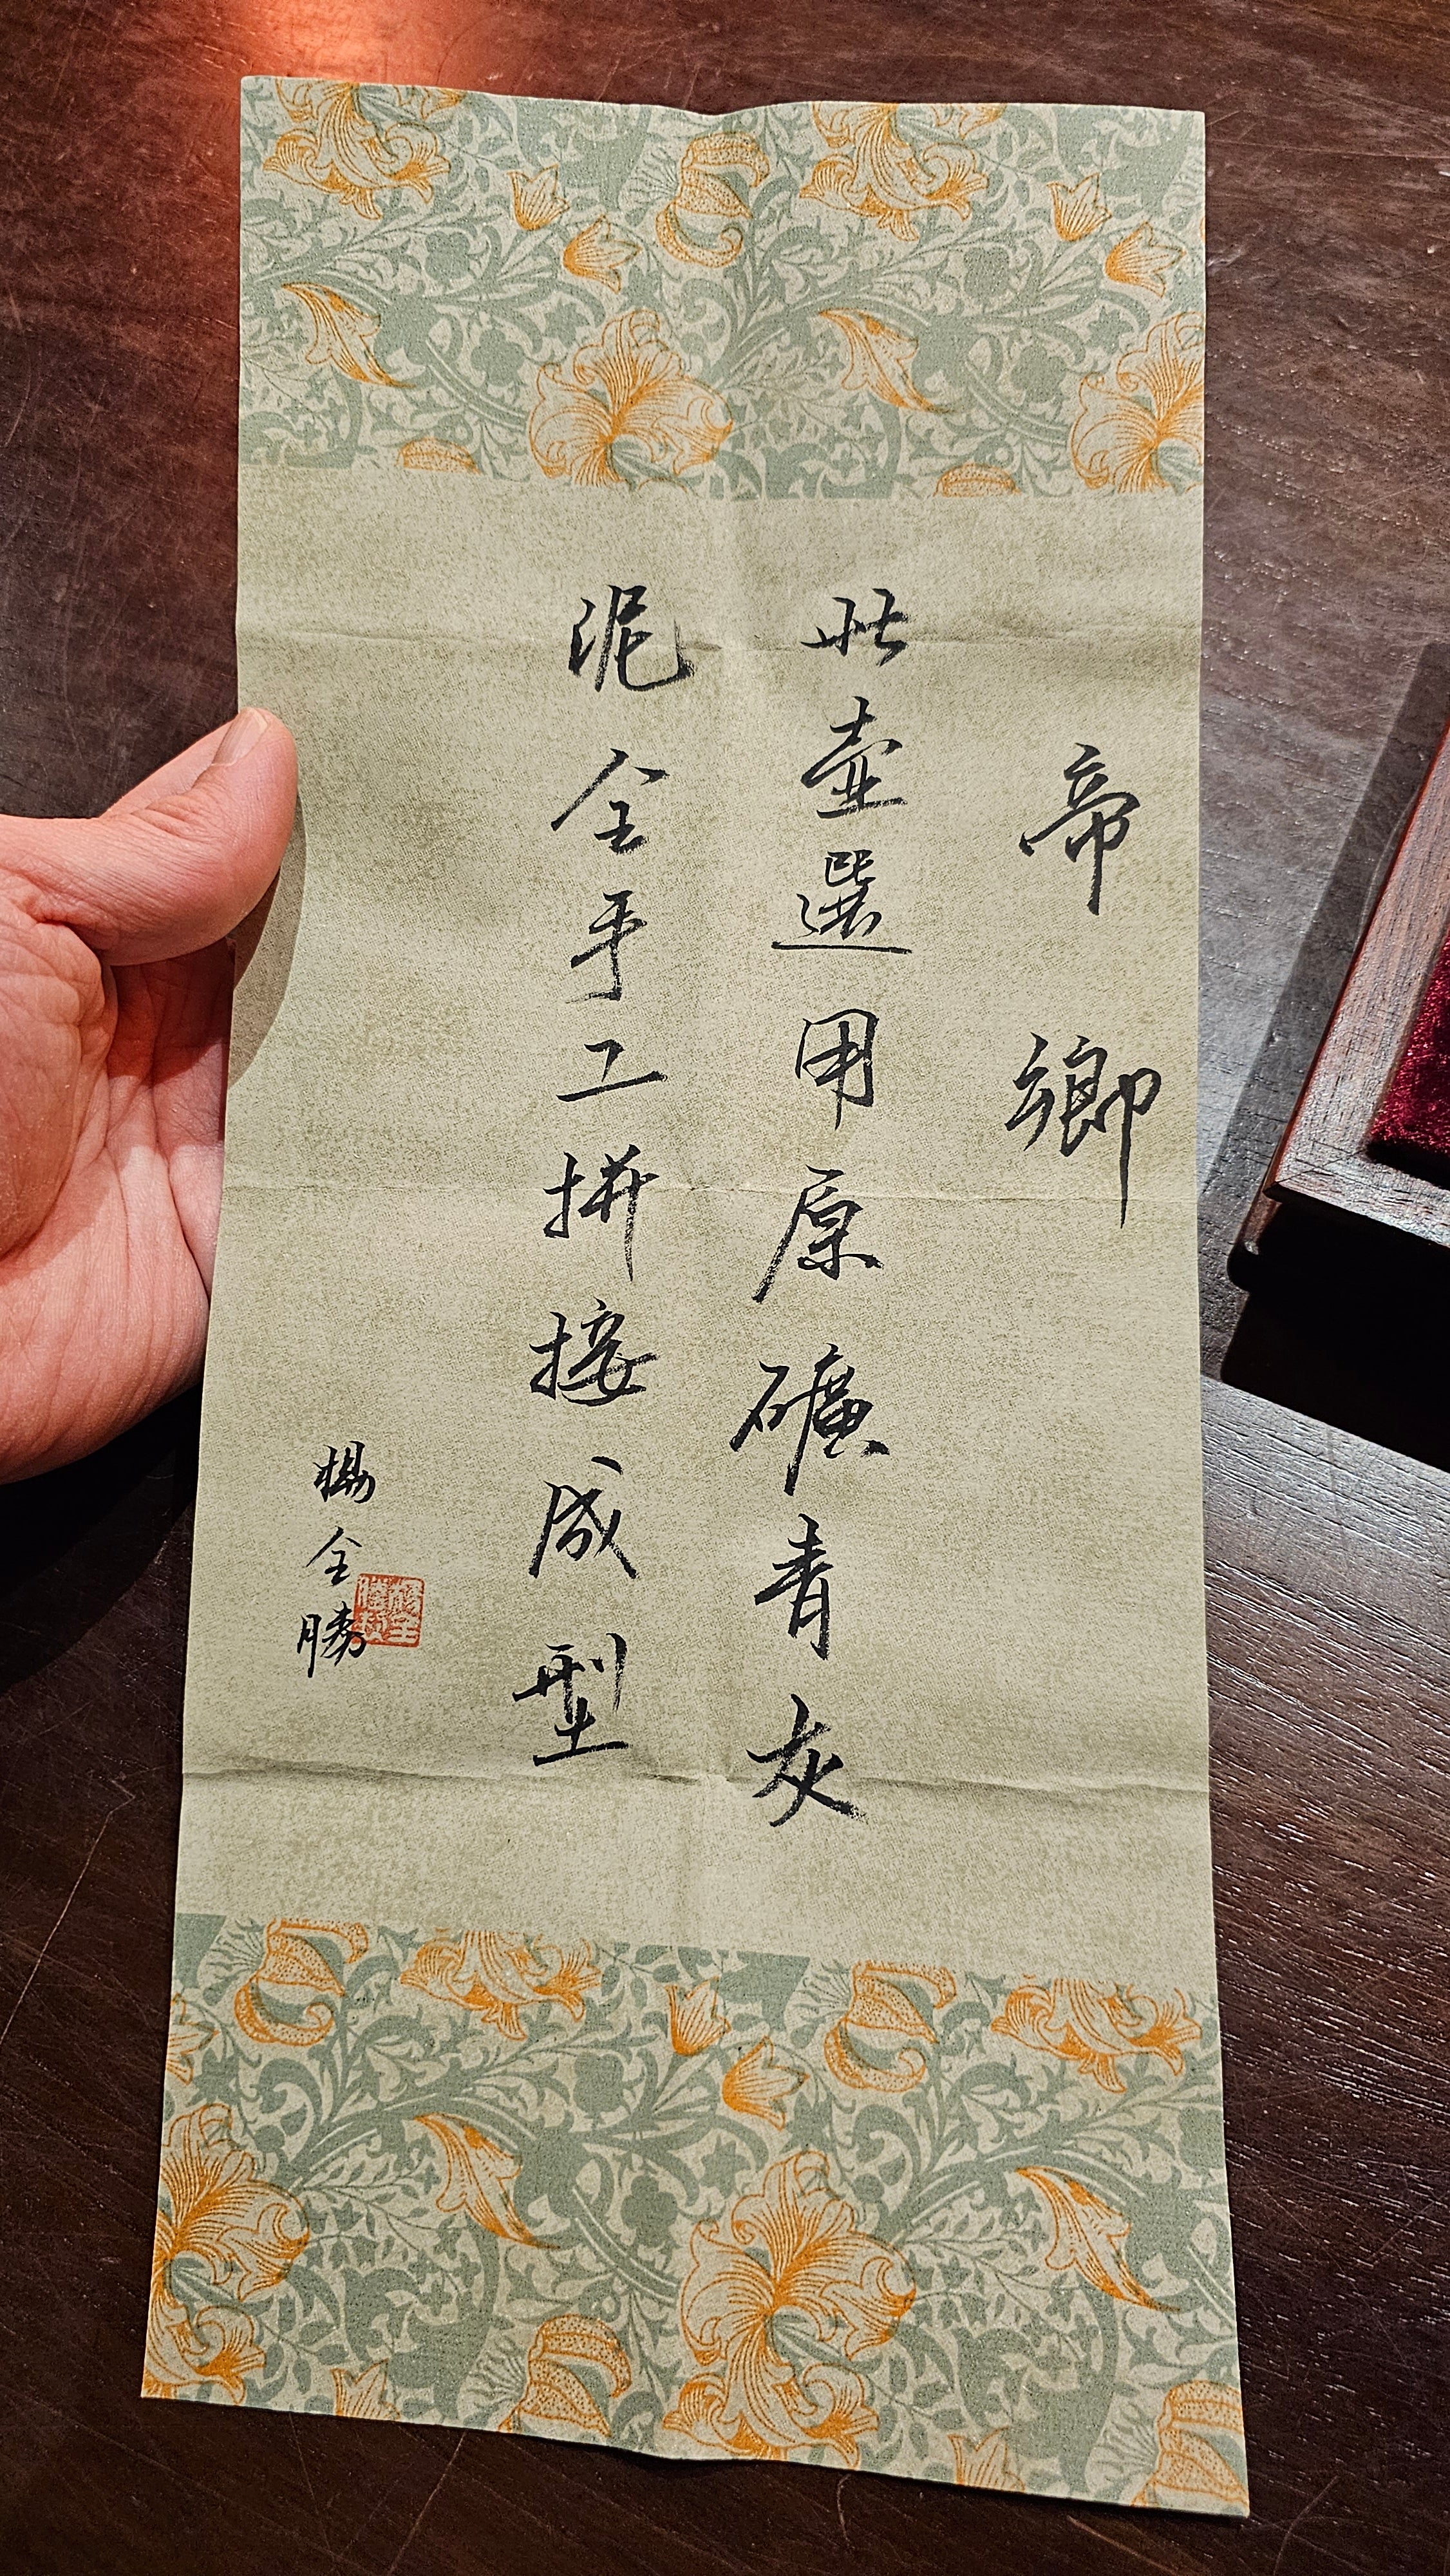 帝鄉
此壺選用原礦青灰
泥全手工拼接成型
楊全勝